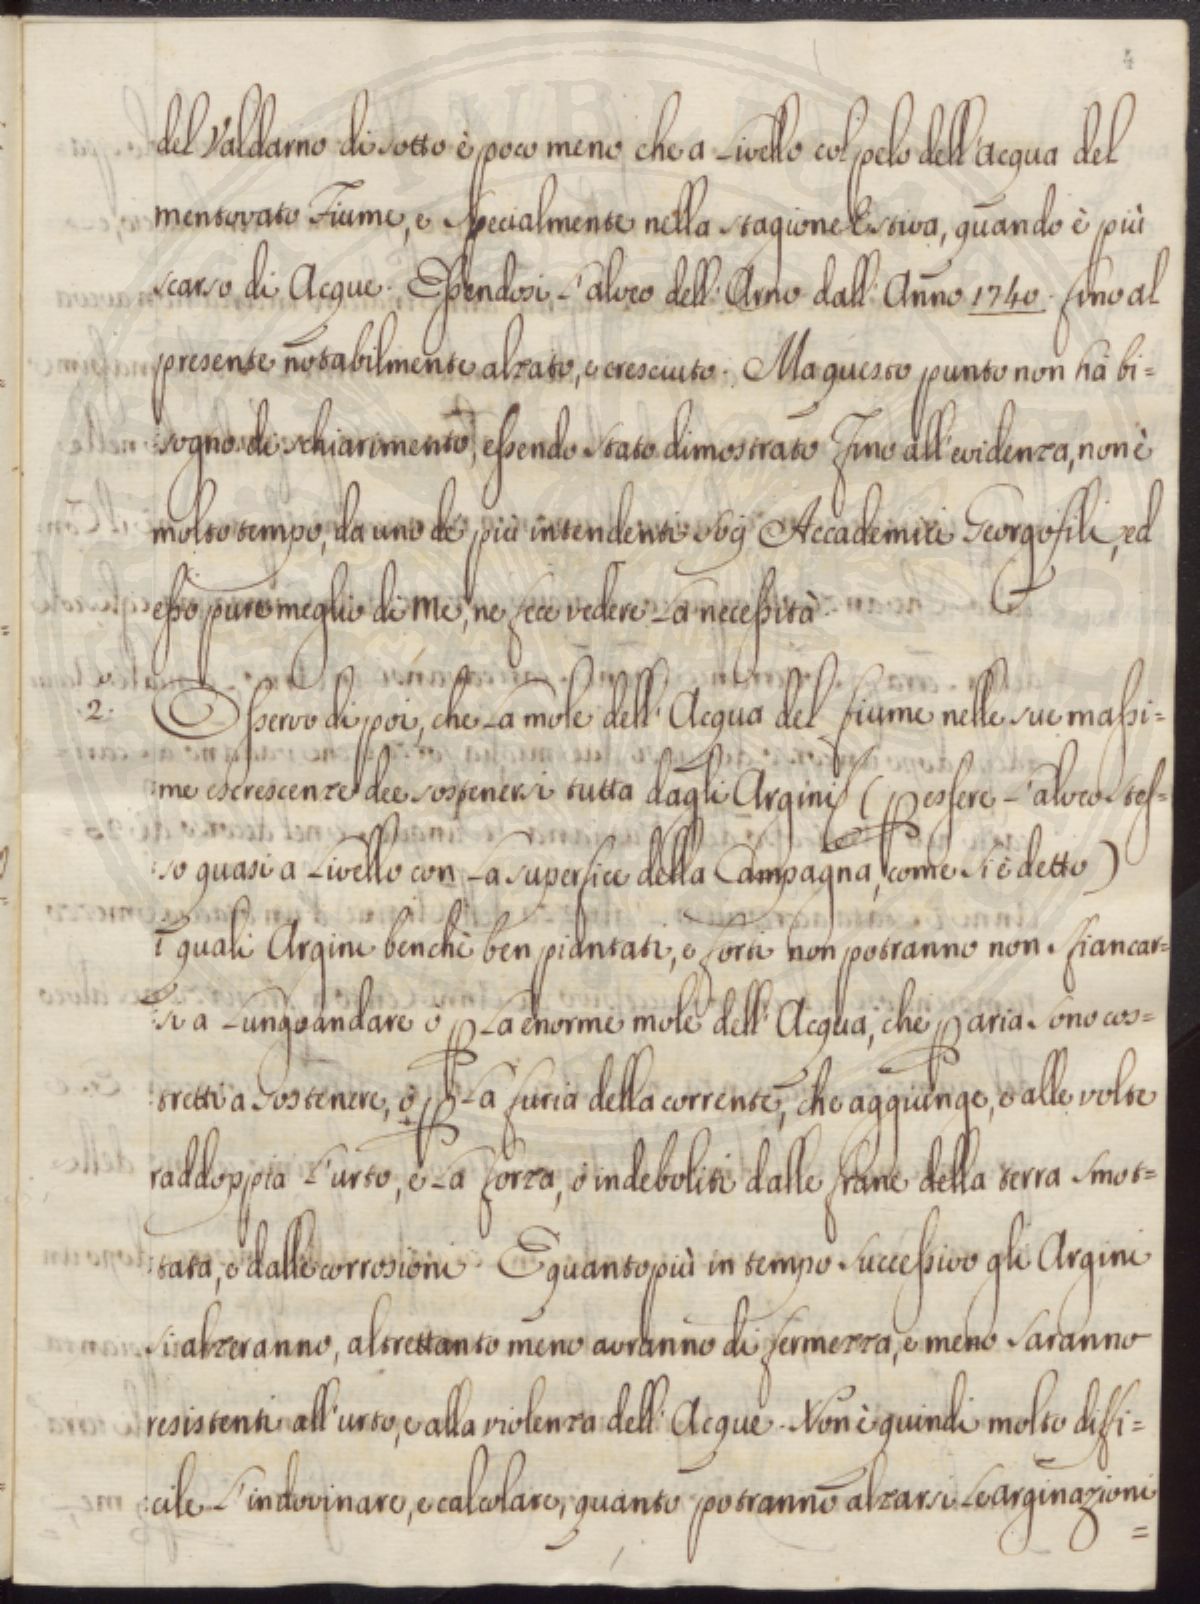 4
del Valdarno di sotto è poco meno che a Livello col pelo dell'acqua del
mentovato Fiume, e specialmente nella stagione Estiva, quando è più
scarso di Acque. Essendosi L'alveo dell'Arno dall'Anno 1740. fino al
presente notabilmente alzato, e cresciuto. Ma questo punto non hà bi=
:sogno di schiarimento, essendo stato dimostrato fino all'evidenza, non è
molto tempo, da uno de' più intendenti Sig. Accademici Georgofili, ed
esso pure meglio di me, ne fece vedere La necessità.
.2. Osservo di poi, che La mole dell'Acqua del fiume nelle sue massi=
:me escrescenze dee sostenersi tutta dagli Argini (p essere L'alveo stes=
:so quasi a Livello con La superficie della Campagna, come si è detto)
i quali Argini benchè ben piantati, e forti non potranno non sfiancar=
:si a Lungo andare ò p La enorme mole dell'Acqua, che p aria sono cos=
:tretti a sostenere, ò p La furia della corrente, che aggiunge, e alle volte
raddoppia L'urto, e La forza, ò indeboliti dalle frane della terra smot=
:tata, e dalle corrosioni. E quanto più in tempo successivo gli Argini
si alzeranno, altrettanto meno avranno di fermezza, e meno saranno
resistenti all'urto, e alla violenza dell'Acque. Non è quindi molto diffi=
:cile L'indovinare, e calcolare, quanto potranno alzarsi Le arginazioni
=